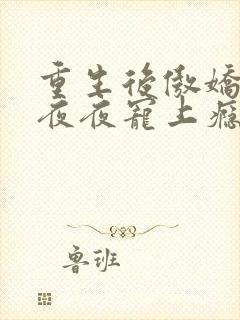 重生後傲嬌
夜夜寵上癮
魯班